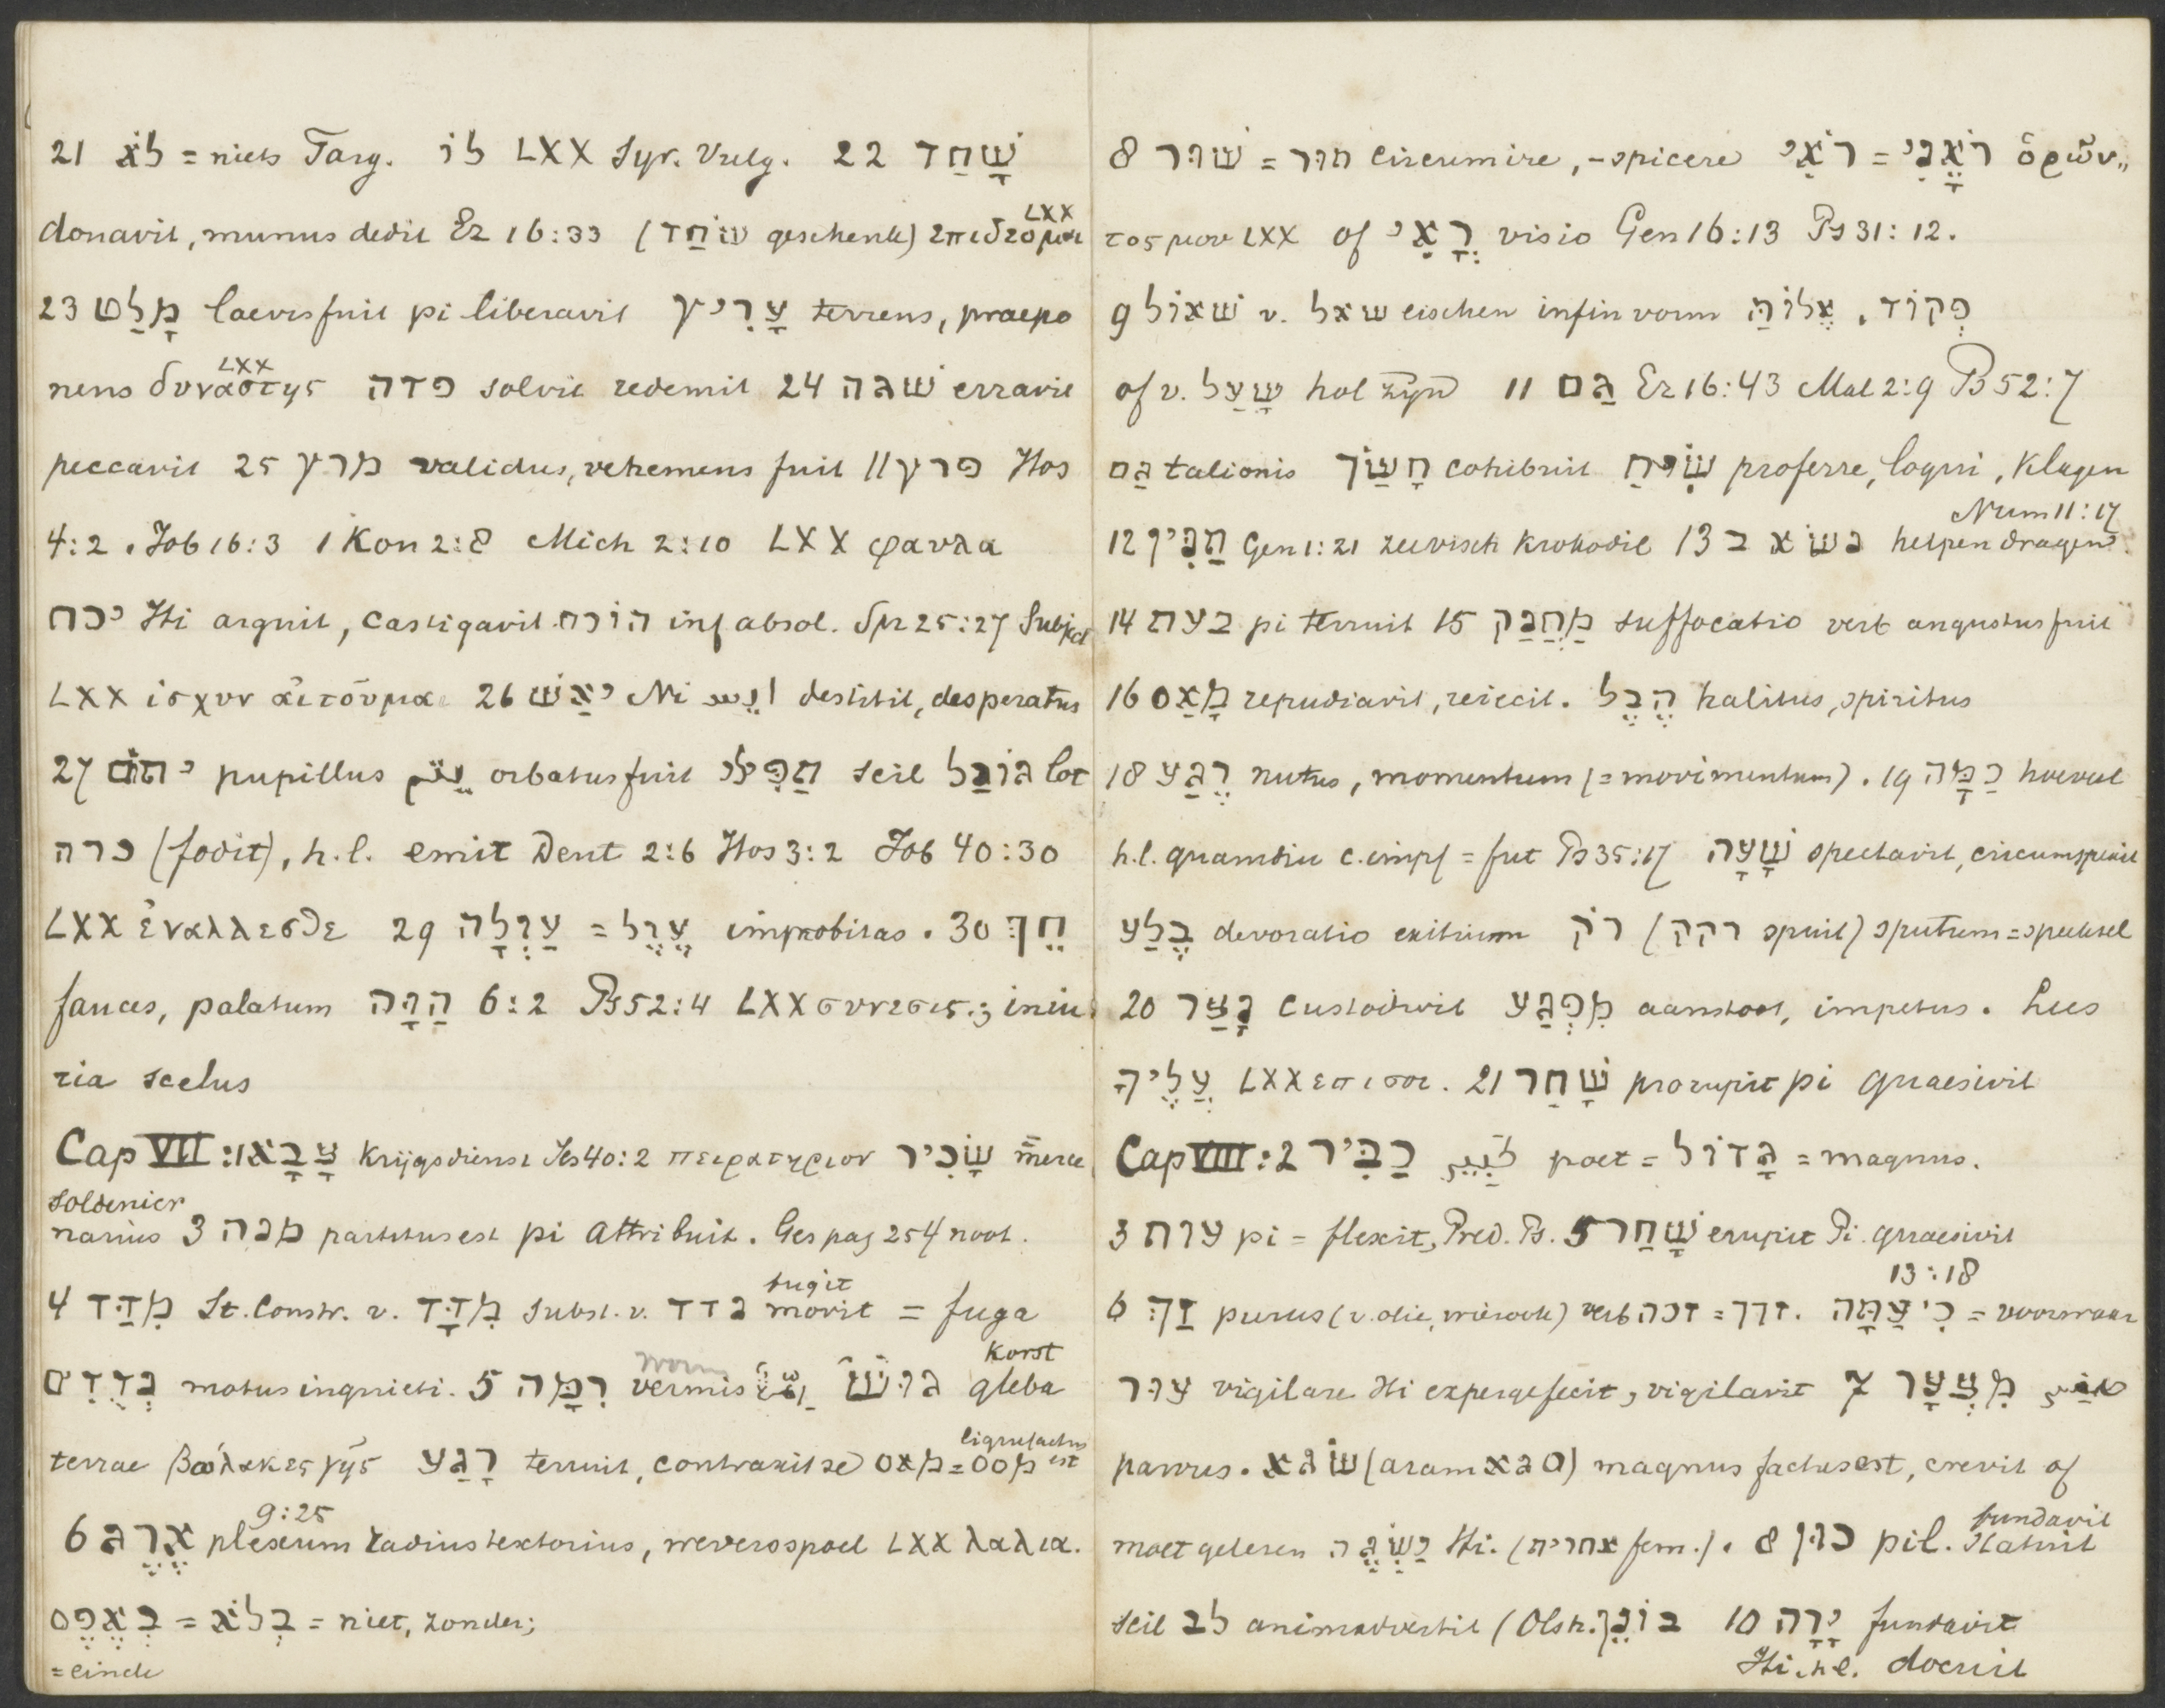 21 לֹא = niets Targ. לוֹ LXX Syr. Vulg. 22 שָׁחַד
donavit, munus dedit Ez 16:33 (שׁוֹחַד geschenk) LXX
23 מָלַט laevis fuit pi liberavit עָרִיץ terrens, praepo
nens δυναστης LXX פדה solvit redemit 24 שׁגה erravit
peccavit 25 מרץ validus, vehemens fuit || פרץ Hos
4:2. Job 16:3 1 Kon 2:8 Mich 2:10 LXX φαυλα
יכח Hi arguit, castigavit הוֹכח inf absol. Spr 25:27 Subject
LXX ἰσχυν 26 יאַשׁ Ni destitit, desperatus
27 יתוֹם pupillus orbatus fuit הַפִּילִ scil גּוֹרַל lot
כרה (fodit), h.l. emit Deut 2:6 Hos 3:2 Job 40:30
LXX ἐναλλεσθε 29 עַוְלָה = עָוֶל improbitas. 30 חֵךְ
fauces, palatum הַוָּה 6:2 Ps 52:4 LXX συνεσις; iniu
ria scelus
Cap VII:1 צָבָא krijgsdienst Jes 40:2 πειρατηριον שָׂכִיר merce
soldenier
narius 3 מנה partitus est pi attribuit. Ges pag 254 noot.
4 מִדַּד St. Constr. v. מִדָּד subst. v. נדד fugit movit = fuga
נְדֻדִים motus inquieti. 5 רִמָּה worm vermis גּוּשׁ korst gleba
terrae γῆς רָגַע terruit, contraxit se מאס = מסס liquefactus est
6 אֶרֶג 9:25 plexum radius textorius, weversspoel LXX λαλια.
בְּאֶפֶס = בְּלֹא = niet, zonder;
= einde
8 שׁוּר = תור circumire, -spicere רֹאִי = רֹאֶנִי ὁρῶν„
τος μου LXX of רֳאִי visio Gen 16:13 Ps 31:12.
9 שׁאוֹל v. שאל eischen infin vorm פְּקוֹד, אֱלוֹהַּ
of v. שָׁעַל hol zijn 11 גַּם Ez 16:43 Mal 2:9 Ps 52:7
גַּם talionis חָשַׂךְ cohibuit שִׂיחַ proferre, loqui, klagen
12 תַּנִּין Gen 1:21 zeevisch krokodil 13 נשׂא ב helpen dragen Num 11:17
14 בעת pi terruit 15 מַחֲנַק suffocatio verb angustus fuit
16 מָאַס repudiavit, reiecit. הֶבֶל halitus, spiritus
18 רֶגַע nutus, momentum (= movimentum). 19 כַּמָּה hoeveel
h.l. quamdiu c. impf = fut Ps 35:17 שָׁעָה spectavit, circumspexit
בֶּלַע devoratio exitium רֹק (רקק spuit) sputum = speeksel
20 נָצַר custodivit מִפְגַּע aanstoot, impetus. Lees
עָלֶיךָ LXX επι σοι. 21 שָׁחַר prorupit pi quaesivit
Cap VIII:2 כַּבִּיר كبير poet = גָּדוֹל = magnus.
3 עות pi = flexit, Pred. Ps. 5 שָׁחַר erupit Pi. quaesivit
6 זַךְ purus (v. olie, wierook) verb זכה = זכך. כִּי עַתָּה 13:18 = voorwaar
עוּר vigilare Hi expergefecit, vigilavit 7 מִצְעָר
parvus. שׂגא (aram סגא) magnus factus est, crevit of
moet gelezen יַשְׂגֶּה Hi. (אחרית fem.). 8 כּוּן pil. fundavit statuit
scil לב animadvertit (Olsh. בּוֹנֵן 10 יָרָה fundavit
Hi. h.l. docuit